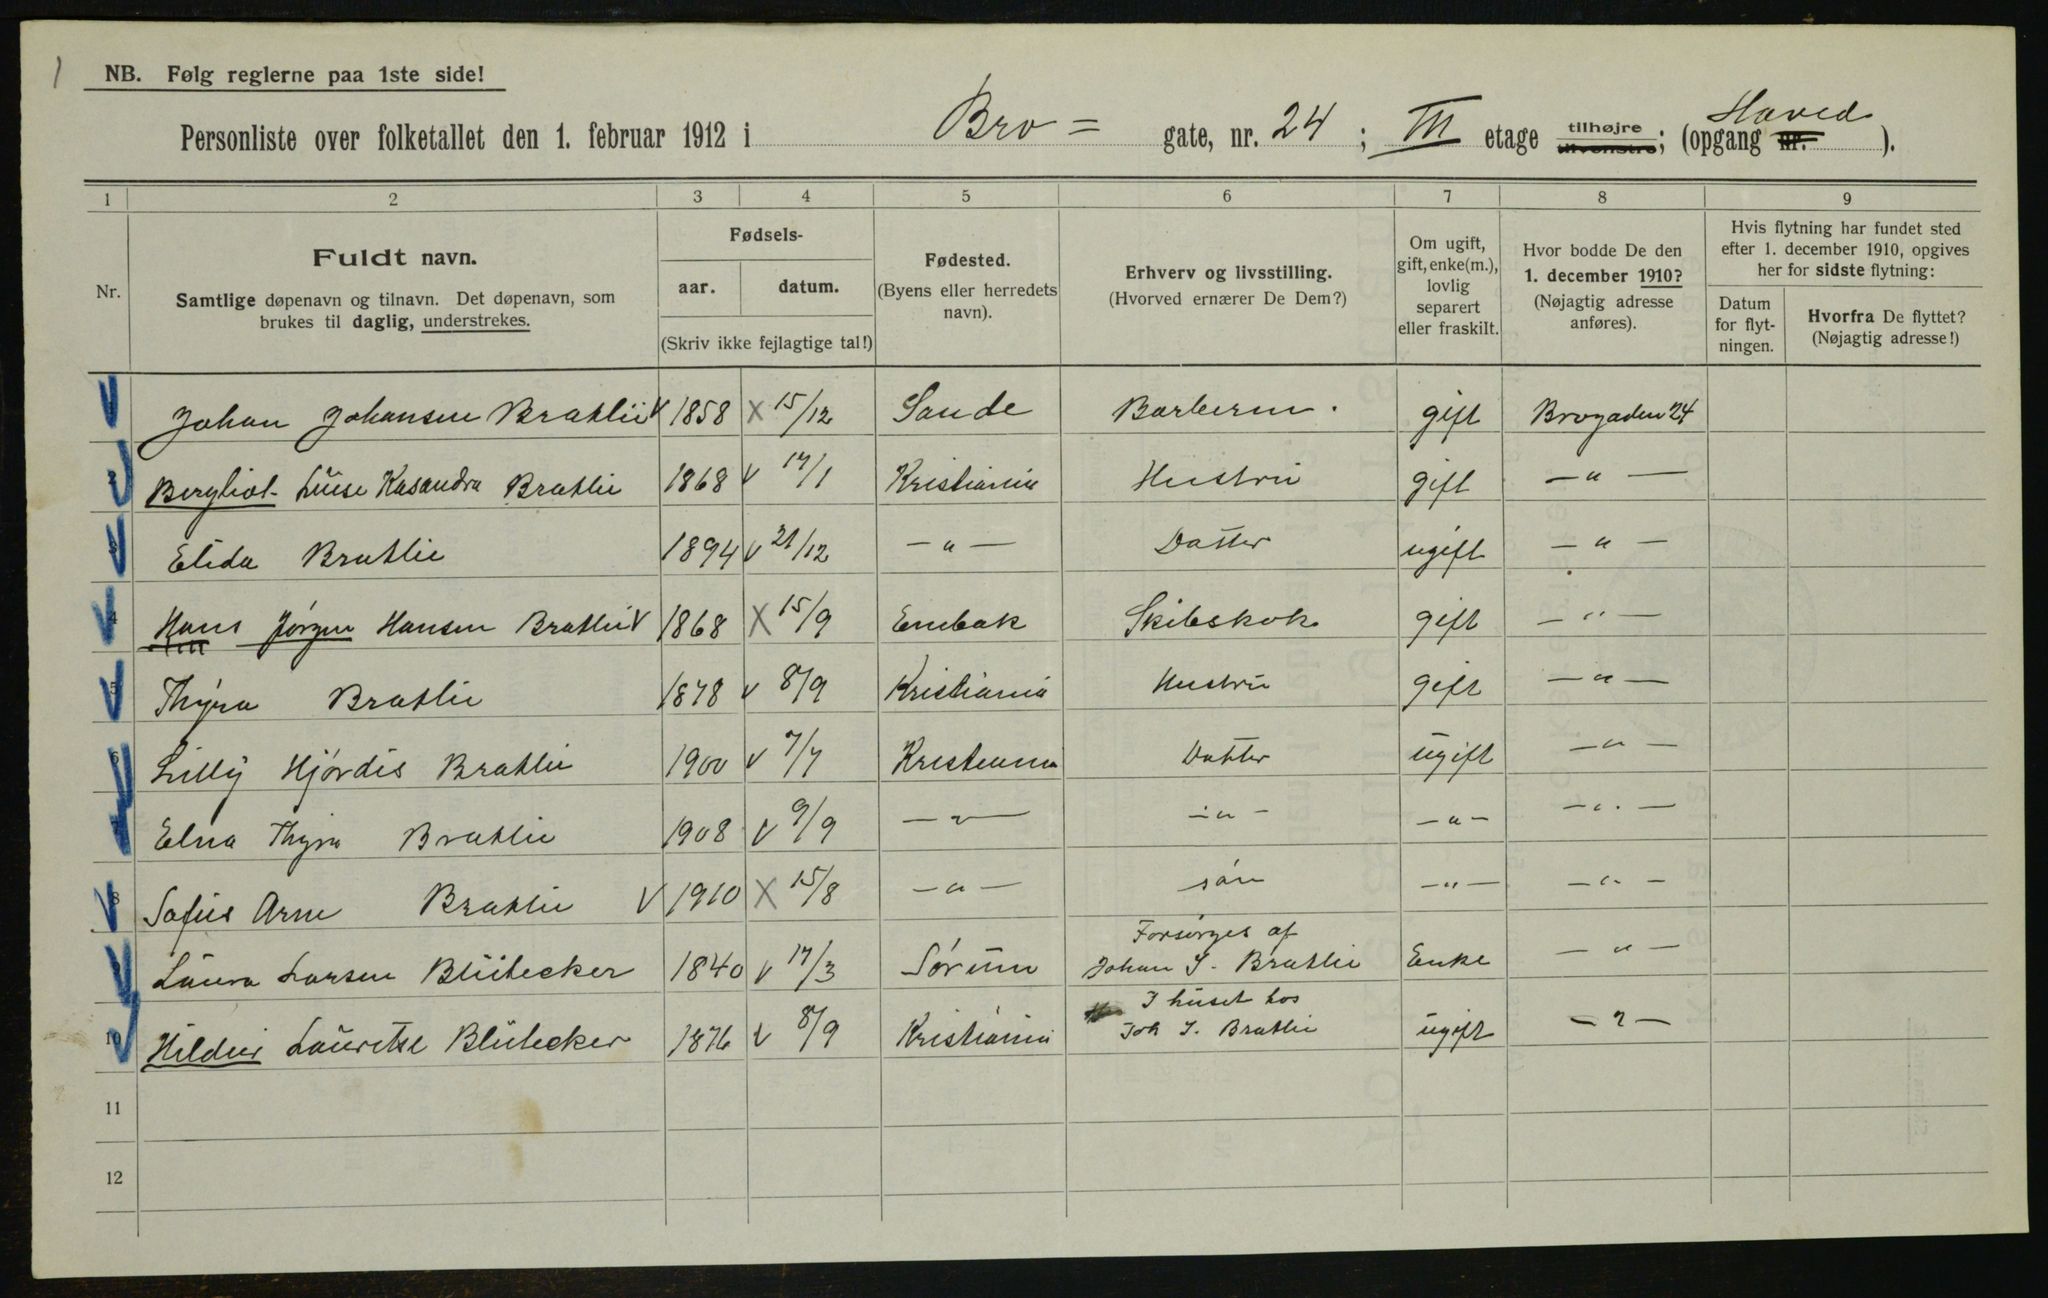 1
NB. Følg reglerne paa 1ste side!
Personliste over folketallet den 1. februar 1912 i Bro= gate, nr. 24 ; III etage tilhøjre tilvenstre; (opgang nr. Hoved ).
1 2 3 4 5 6 7 8 9
Nr.
Fuldt navn.
Samtlige døpenavn og tilnavn. Det døpenavn, som
brukes til daglig, understrekes.
Fødsels-
aar. datum.
(Skriv ikke fejlagtige tal!)
Fødested.
(Byens eller herredets
navn).
Erhverv og livsstilling.
(Hvorved ernærer De Dem?)
Om ugift,
gift, enke(m.),
lovlig
separert
eller fraskilt.
Hvor bodde De den
1. december 1910?
(Nøjagtig adresse
anføres).
Hvis flytning har fundet sted
efter 1. december 1910, opgives
her for sidste flytning:
Datum
for flyt-
ningen.
Hvorfra De flyttet?
(Nøjagtig adresse!)
Johan Johansen Bratlie V 1858 X 15/12 Sande gift Brogaden 24
2 Bergliot Luise Kasandra Bratlie 1868 V 17/1 Kristiania Hustru gift — " —
3 Elida Bratlie 1894 V 21/12 — " — Datter ugift — " —
4 Hans Jörgen Hansen Bratlie V 1868 X 15/9 Enebak Skibskok gift — " —
5 Thyra Bratlie 1878 V 8/9 Kristiania Hustru gift — " —
6 Lilly Hjördis Bratlie 1900 V 7/7 Kristiania Datter ugift — " —
7 Elna Thyra Bratlie 1908 V 9/9 — " — — " — — " — — " —
8 Sofus Arne Bratlie V 1910 X 15/8 — " — sön — " — — " —
9 Laura Larsen Blütecker 1840 V 17/3 Sörum Forsörges af Johan J. Bratlie Enke — " —
10 Hildur Lauretse Blütecker 1876 V 8/9 Kristiania I huset hos Joh J. Bratlie ugift — " —
11
12